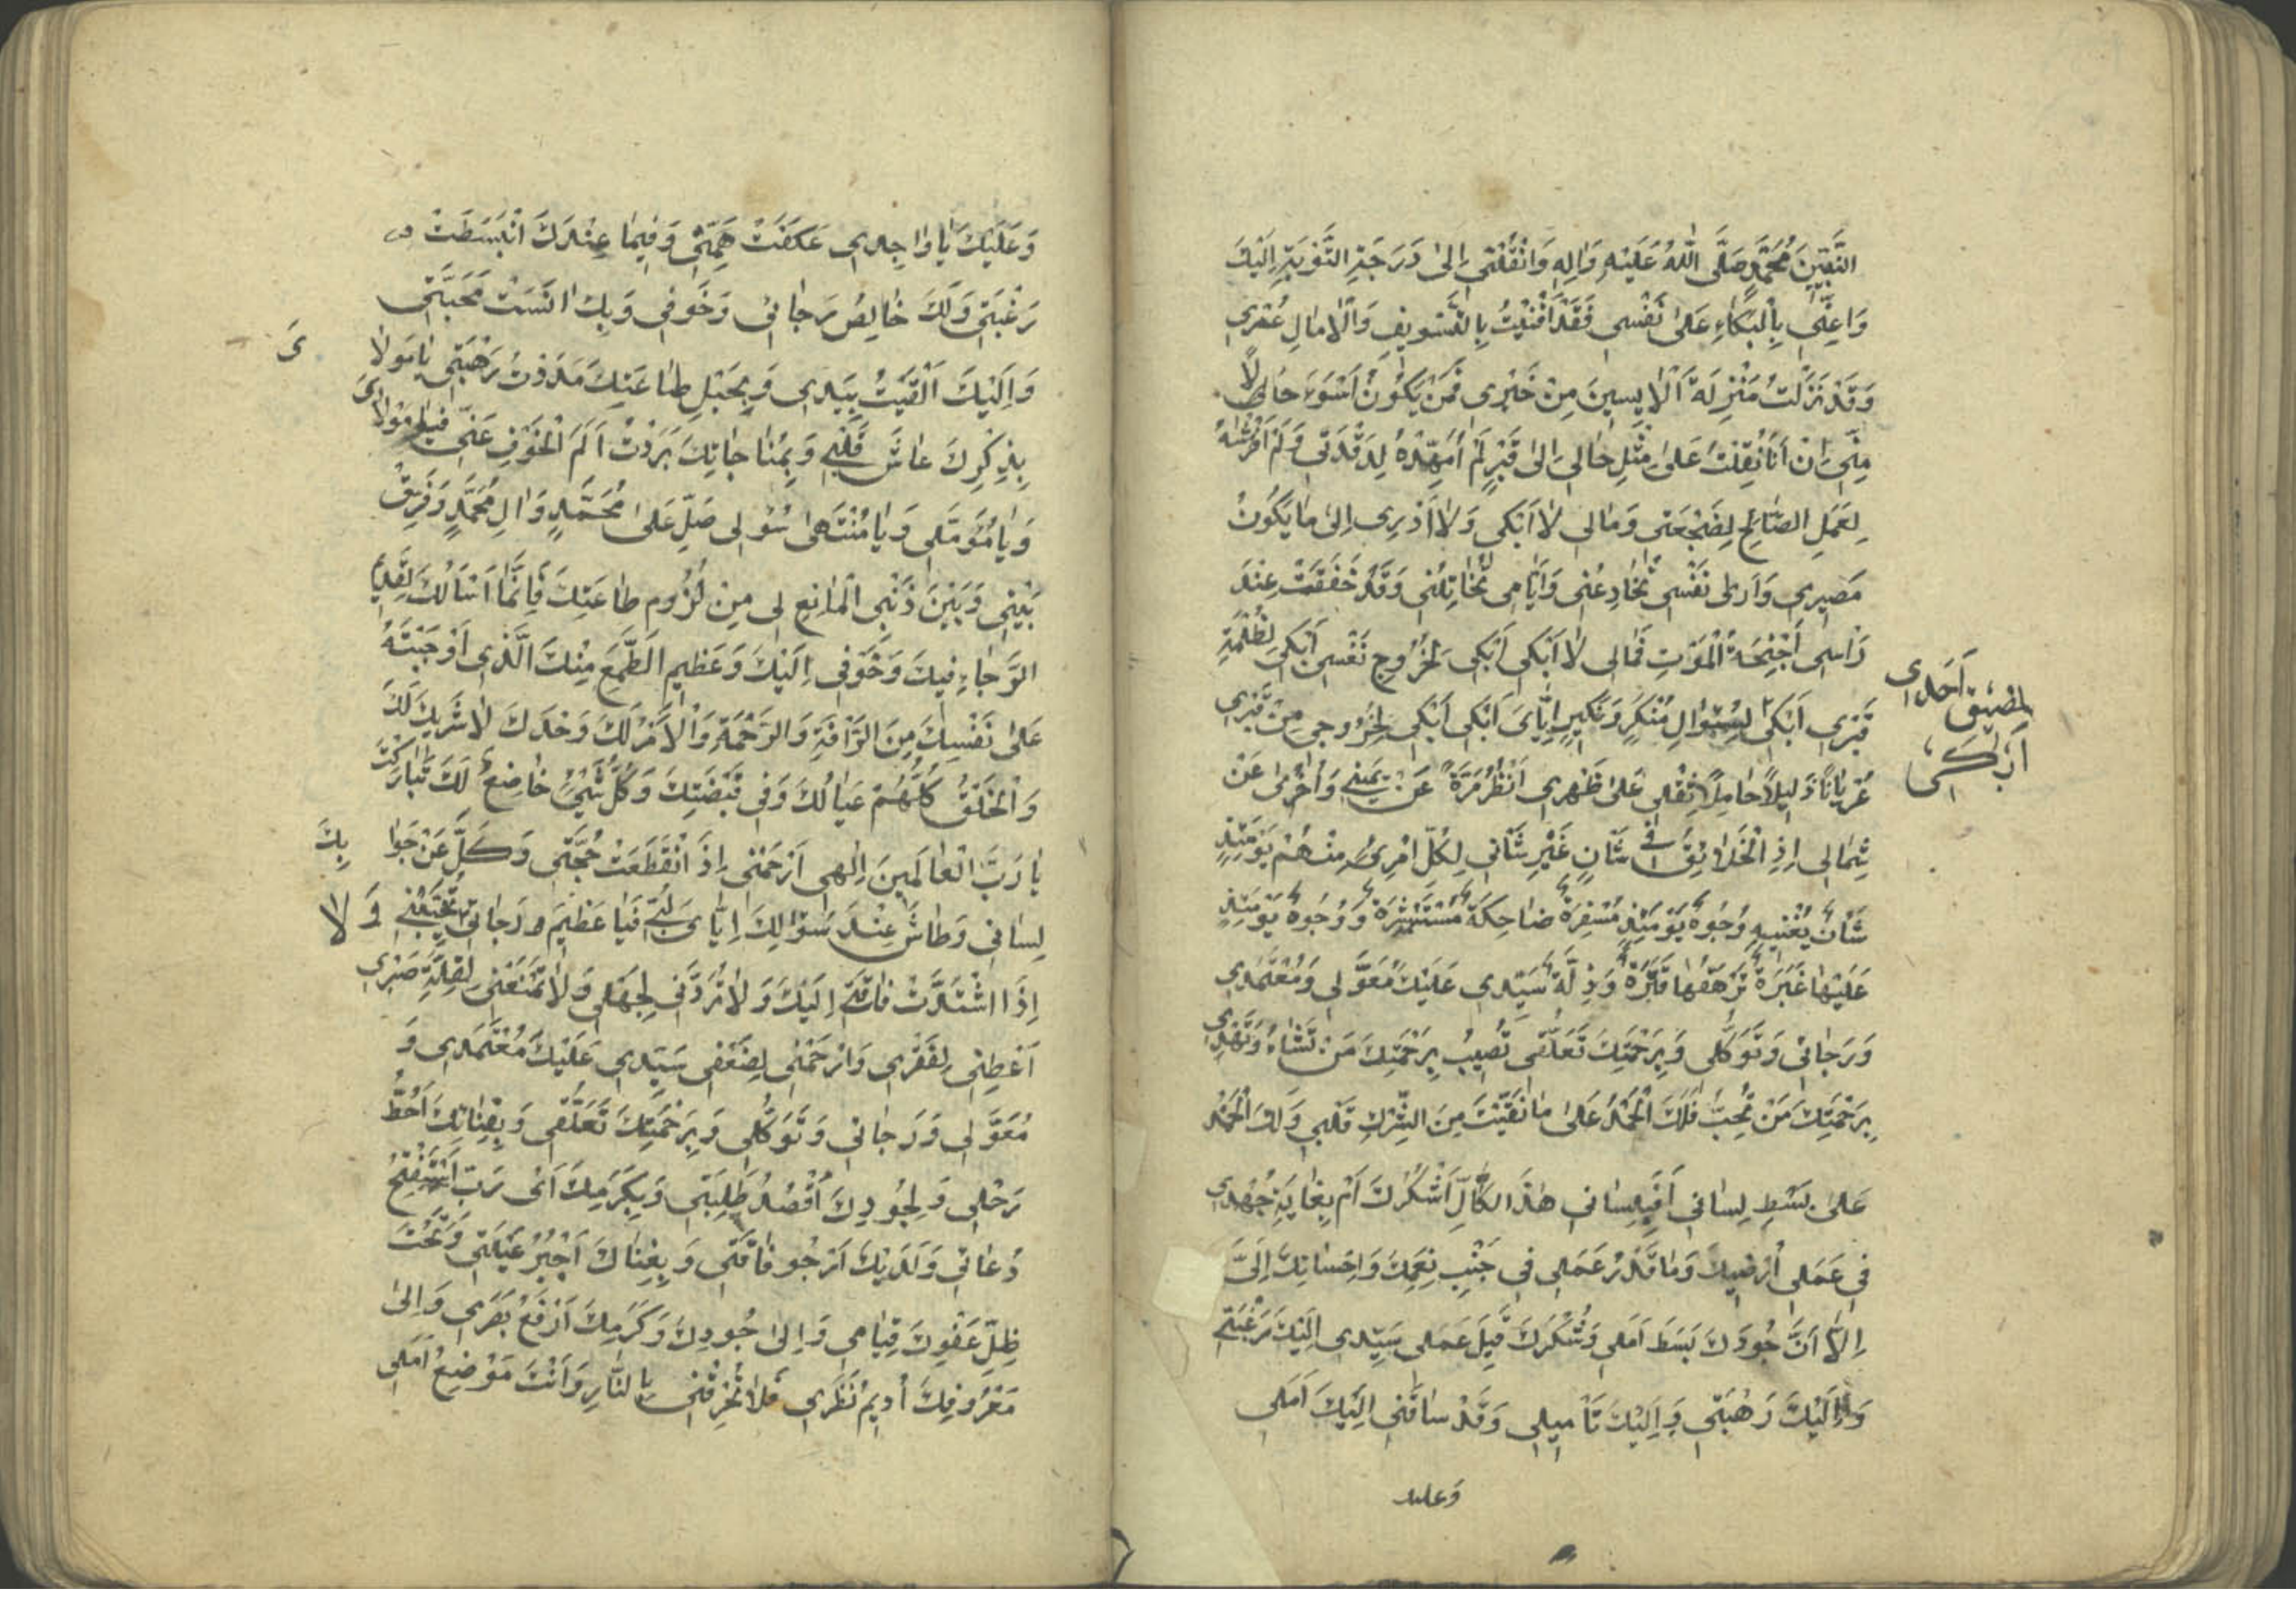 النَّبِيِّينَ مُحَمَّدٍ صَلَّى اللّٰهُ عَلَيْهِ وَاٰلِهِ وَانْقُلْنِي اِلىٰ دَرَجَةِ التَّوْبَةِ اِلَيْكَ
وَاَعِنِّي بِالْبُكَاءِ عَلىٰ نَفْسِي فَقَدْ اَفْنَيْتُ بِالتَّسْوِيفِ وَالْاٰمَالِ عُمْرِي
وَقَدْ نَزَلْتُ مَنْزِلَةَ الْاٰيِسِينَ مِنْ خَيْرِي فَمَنْ يَكُونُ اَسْوَءَ حَالًا
مِنِّي اِنْ اَنَا نُقِلْتُ عَلىٰ مِثْلِ حَالِي اِلىٰ قَبْرٍ لَمْ اُمَهِّدْهُ لِرَقْدَتِي وَلَمْ اَفْرُشْهُ
لِعَمَلِ الصَّالِحِ لِضَجْعَتِي وَمَالِي لَا اَبْكِي وَلَا اَدْرِي اِلىٰ مَا يَكُونُ
مَصِيرِي وَاَرىٰ نَفْسِي تُخَادِعُنِي وَاَيَّامِي تُخَاتِلُنِي وَقَدْ خَفَقَتْ عِنْدَ
رَاْسِي اَجْنِحَةُ الْمَوْتِ فَمَالِي لَا اَبْكِي اَبْكِي لِخُرُوجِ نَفْسِي اَبْكِي لِظُلْمَةِ
قَبْرِي اَبْكِي لِسُؤَالِ مُنْكَرٍ وَنَكِيرٍ اِيَّايَ اَبْكِي اَبْكِي لِخُرُوجِي مِنْ قَبْرِي
لِضِيقِ لَحَدِي
اَبْكِي
عُرْيَانًا ذَلِيلًا حَامِلًا ثِقْلِي عَلىٰ ظَهْرِي اَنْظُرُ مَرَّةً عَنْ يَمِينِي وَاُخْرىٰ عَنْ
شِمَالِي اِذِ الْخَلَائِقُ فِي شَاْنٍ غَيْرِ شَاْنِي لِكُلِّ امْرِئٍ مِنْهُمْ يَوْمَئِذٍ
شَاْنٌ يُغْنِيهِ وُجُوهٌ يَوْمَئِذٍ مُسْفِرَةٌ ضَاحِكَةٌ مُسْتَبْشِرَةٌ وَوُجُوهٌ يَوْمَئِذٍ
عَلَيْهَا غَبَرَةٌ تَرْهَقُهَا قَتَرَةٌ وَذِلَّةٌ سَيِّدِي عَلَيْكَ مُعَوَّلِي وَمُعْتَمَدِي
وَرَجَائِي وَتَوَكُّلِي وَبِرَحْمَتِكَ تَعَلُّقِي تُصِيبُ بِرَحْمَتِكَ مَنْ تَشَاءُ وَتَهْدِي
بِرَحْمَتِكَ مَنْ تُحِبُّ فَلَكَ الْحَمْدُ عَلىٰ مَا نَقَّيْتَ مِنَ الشِّرْكِ قَلْبِي وَلَكَ الْحَمْدُ
عَلىٰ بَسْطِ لِسَانِي اَفَبِلِسَانِي هٰذَا الْكَالِّ اَشْكُرُكَ اَمْ بِغَايَةِ جُهْدِي
فِي عَمَلِي اُرْضِيكَ وَمَا قَدْرُ عَمَلِي فِي جَنْبِ نِعَمِكَ وَاِحْسَانِكَ اِلَيَّ
اِلَّا اَنَّ جُودَكَ بَسَطَ اَمَلِي وَشُكْرَكَ قَبِلَ عَمَلِي سَيِّدِي اِلَيْكَ رَغْبَتِي
وَاِلَيْكَ رَهْبَتِي وَاِلَيْكَ تَاْمِيلِي وَقَدْ سَاقَنِي اِلَيْكَ اَمَلِي
وَعليك
وَعَلَيْكَ يَا وَاجِدِي عَكَفَتْ هِمَّتِي وَفِيمَا عِنْدَكَ انْبَسَطَتْ
رَغْبَتِي وَلَكَ خَالِصُ رَجَائِي وَخَوْفِي وَبِكَ اَنِسَتْ مَحَبَّتِي
وَاِلَيْكَ اَلْقَيْتُ بِيَدِي وَبِحَبْلِ طَاعَتِكَ مَدَدْتُ رَهْبَتِي يَا مَوْلَا
يَ
بِذِكْرِكَ عَاشَ قَلْبِي وَبِمُنَاجَاتِكَ بَرَدْتُ اَلَمَ الْخَوْفِ عَنِّي فَيَا مَوْلَايَ
وَيَا مُؤَمَّلِي وَيَا مُنْتَهىٰ سُؤْلِي صَلِّ عَلىٰ مُحَمَّدٍ وَاٰلِ مُحَمَّدٍ وَفَرِّقْ
بَيْنِي وَبَيْنَ ذَنْبِي الْمَانِعِ لِي مِنْ لُزُومِ طَاعَتِكَ فَاِنَّمَا اَسْاَلُكَ لِقَدِيمِ
الرَّجَاءِ فِيكَ وَخَوْفِي اِلَيْكَ وَعَظِيمِ الطَّمَعِ مِنْكَ الَّذِي اَوْجَبْتَهُ
عَلىٰ نَفْسِكَ مِنَ الرَّاْفَةِ وَالرَّحْمَةِ وَالْاَمْرُ لَكَ وَحْدَكَ لَا شَرِيكَ لَكَ
وَالْخَلْقُ كُلُّهُمْ عِيَالُكَ وَفِي قَبْضَتِكَ وَكُلُّ شَيْءٍ خَاضِعٌ لَكَ تَبَارَكْتَ
يَا رَبَّ الْعَالَمِينَ اِلٰهِي ارْحَمْنِي اِذَا انْقَطَعَتْ حُجَّتِي وَكَلَّ عَنْ جَوَا
بِكَ
لِسَانِي وَطَاشَ عِنْدَ سُؤَالِكَ اِيَّايَ لُبِّي فَيَا عَظِيمَ رَجَائِي لَا تُخَيِّبْنِي
اِذَا اشْتَدَّتْ فَاقَتِي اِلَيْكَ وَلَا تَرُدَّنِي لِجَهْلِي وَلَا تَمْنَعْنِي لِقِلَّةِ صَبْرِي
اَعْطِنِي لِفَقْرِي وَارْحَمْنِي لِضَعْفِي سَيِّدِي عَلَيْكَ مُعْتَمَدِي وَ
مُعَوَّلِي وَرَجَائِي وَتَوَكُّلِي وَبِرَحْمَتِكَ تَعَلُّقِي وَبِفِنَائِكَ اَحُطُّ
رَحْلِي وَلِجُودِكَ اَقْصُدُ طَلِبَتِي وَبِكَرَمِكَ اَىْ رَبِّ اَسْتَفْتِحُ
دُعَائِي وَلَدَيْكَ اَرْجُو فَاقَتِي وَبِغِنَاكَ اَجْبُرُ عَيْلَتِي وَتَحْتَ
ظِلِّ عَفْوِكَ قِيَامِي وَاِلىٰ جُودِكَ وَكَرَمِكَ اَرْفَعُ بَصَرِي وَاِلىٰ
مَعْرُوفِكَ اُدِيمُ نَظَرِي فَلَا تُحْرِقْنِي بِالنَّارِ وَاَنْتَ مَوْضِعُ اَمَلِي